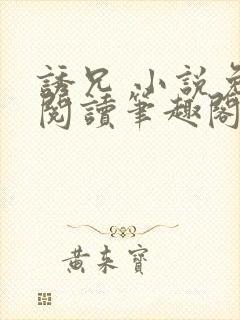 誘兄 小說免
閱讀筆趣閣
黃來寶